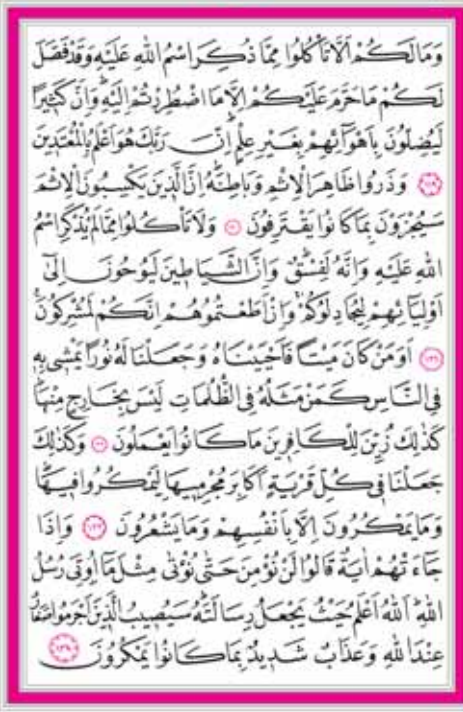 وَمَا لَكُمْ اَلَّا تَأْكُلُوا مِمَّا ذُكِرَ اسْمُ اللّٰهِ عَلَيْهِ وَقَدْ فَصَّلَ
لَكُمْ مَا حَرَّمَ عَلَيْكُمْ اِلَّا مَا اضْطُرِرْتُمْ اِلَيْهِ وَاِنَّ كَثِيرًا
لَيُضِلُّونَ بِاَهْوَٓائِهِمْ بِغَيْرِ عِلْمٍ اِنَّ رَبَّكَ هُوَ اَعْلَمُ بِالْمُعْتَدِينَ
﴿١١٩﴾ وَذَرُوا ظَاهِرَ الْاِثْمِ وَبَاطِنَهُ اِنَّ الَّذِينَ يَكْسِبُونَ الْاِثْمَ
سَيُجْزَوْنَ بِمَا كَانُوا يَقْتَرِفُونَ ﴿١٢٠﴾ وَلَا تَأْكُلُوا مِمَّا لَمْ يُذْكَرِ اسْمُ
اللّٰهِ عَلَيْهِ وَاِنَّهُ لَفِسْقٌ وَاِنَّ الشَّيَاطِينَ لَيُوحُونَ اِلٰٓى
اَوْلِيَٓائِهِمْ لِيُجَادِلُوكُمْ وَاِنْ اَطَعْتُمُوهُمْ اِنَّكُمْ لَمُشْرِكُونَ
﴿١٢١﴾ اَوَمَنْ كَانَ مَيْتًا فَاَحْيَيْنَاهُ وَجَعَلْنَا لَهُ نُورًا يَمْشِي بِهِ
فِي النَّاسِ كَمَنْ مَثَلُهُ فِي الظُّلُمَاتِ لَيْسَ بِخَارِجٍ مِنْهَا
كَذٰلِكَ زُيِّنَ لِلْكَافِرِينَ مَا كَانُوا يَعْمَلُونَ ﴿١٢٢﴾ وَكَذٰلِكَ
جَعَلْنَا فِي كُلِّ قَرْيَةٍ اَكَابِرَ مُجْرِمِيهَا لِيَمْكُرُوا فِيهَا
وَمَا يَمْكُرُونَ اِلَّا بِاَنْفُسِهِمْ وَمَا يَشْعُرُونَ ﴿١٢٣﴾ وَاِذَا
جَٓاءَتْهُمْ اٰيَةٌ قَالُوا لَنْ نُؤْمِنَ حَتّٰى نُؤْتٰى مِثْلَ مَٓا اُوتِيَ رُسُلُ
اللّٰهِ اَللّٰهُ اَعْلَمُ حَيْثُ يَجْعَلُ رِسَالَتَهُ سَيُصِيبُ الَّذِينَ اَجْرَمُوا صَغَارٌ
عِنْدَ اللّٰهِ وَعَذَابٌ شَدِيدٌ بِمَا كَانُوا يَمْكُرُونَ ﴿١٢٤﴾